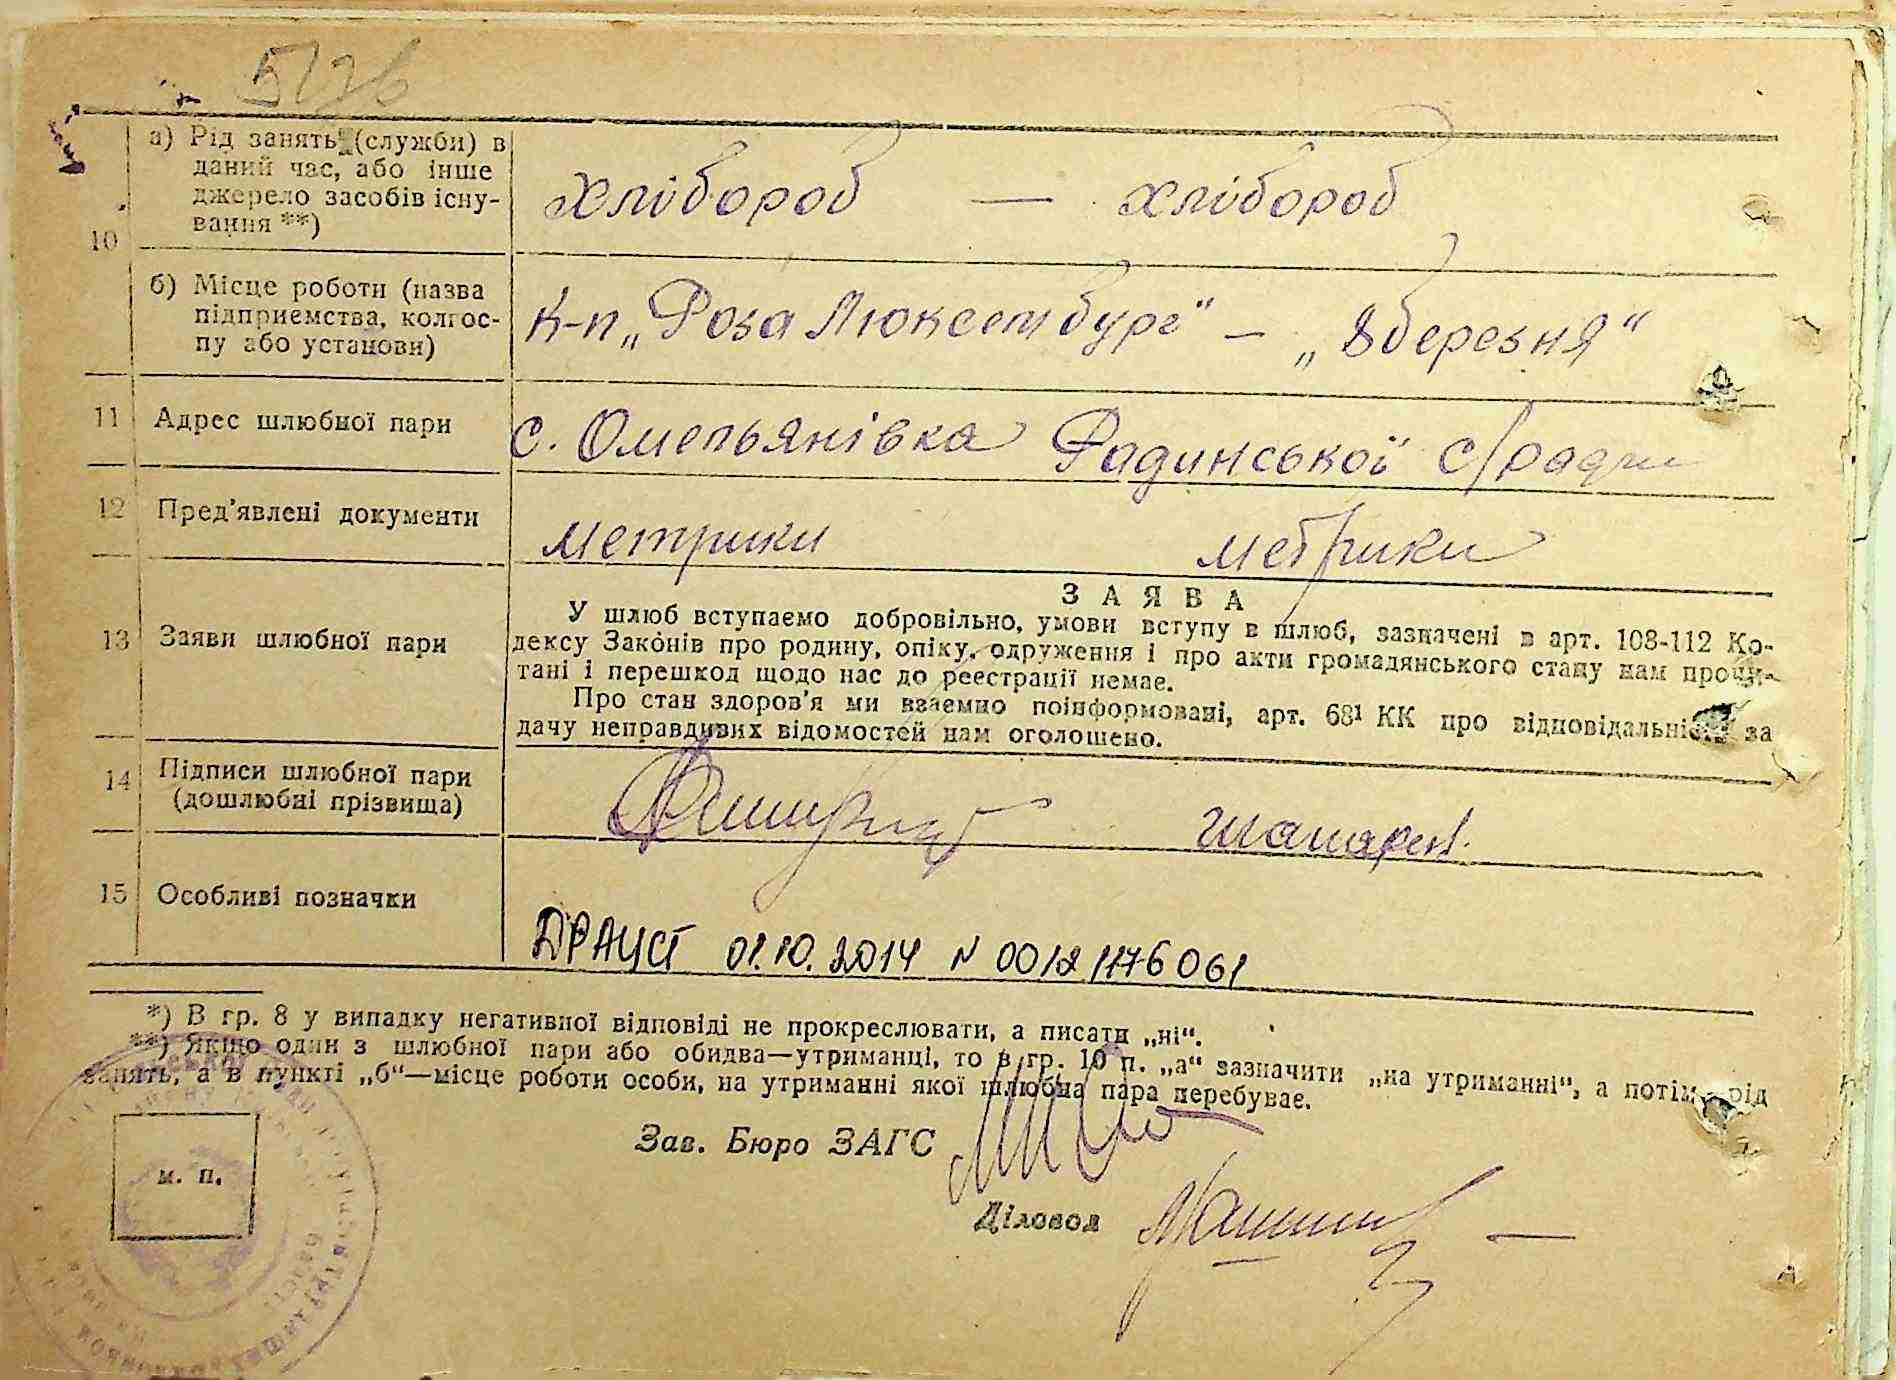 5136
10
а) Рід занять (служби) в
даний час, або інше
джерело засобів існу-
вання **)
хлібороб — хлібороб
б) Місце роботи (назва
підприємства, колгос-
пу або установи)
к-п „Роза Люксембург" – „8 березня"
11 Адрес шлюбної пари
с. Омельянівка Радинської с/ради
12 Пред'явлені документи
метрики метрики
13 Заяви шлюбної пари
ЗАЯВА
У шлюб вступаємо добровільно, умови вступу в шлюб, зазначені в арт. 108-112 Ко-
дексу Законів про родину, опіку, одруження і про акти громадянського стану нам прочи-
тані і перешкод щодо нас до реєстрації немає.
Про стан здоров'я ми взаємно поінформовані, арт. 68¹ КК про відповідальність за
дачу неправдивих відомостей нам оголошено.
14 Підписи шлюбної пари
(дошлюбні прізвища)
15 Особливі позначки
ДРАЦСГ 01.10.2014 N 00121176061
*) В гр. 8 у випадку негативної відповіді не прокреслювати, а писати „ні".
**) Якщо один з шлюбної пари або обидва—утриманці, то в гр. 10 п. „а" зазначити „на утриманні", а потім рід
занять, а в пункті „б"—місце роботи особи, на утриманні якої шлюбна пара перебуває.
Зав. Бюро ЗАГС
м. п.
Діловод